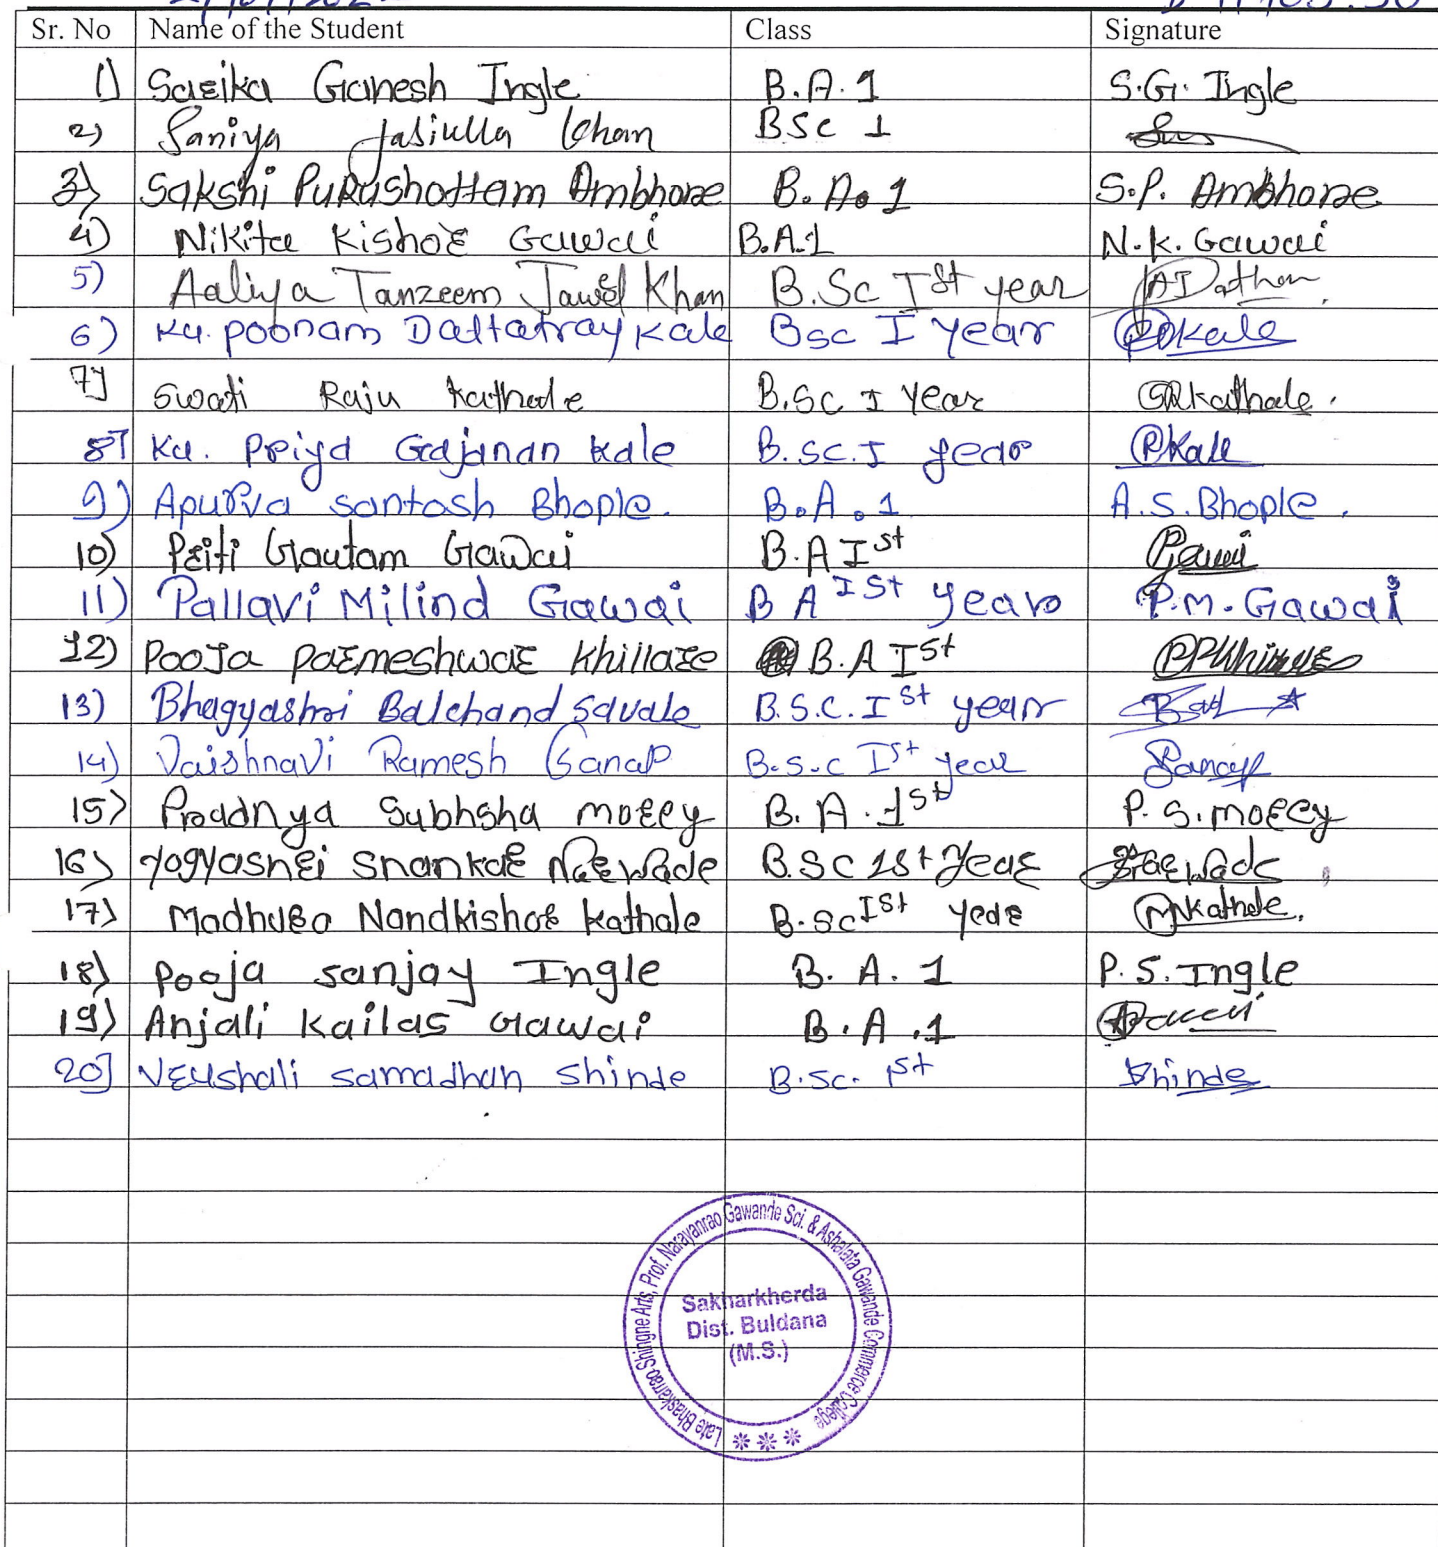 Sr. No Name of the Student Class Signature
1) Sarika Ganesh Ingle B.A.1 S.G. Ingle
2) Saniya Jasiulla Khan BSc 1
3) Sakshi Purushottam Ambhore B.A.1 S.P. Ambhore
4) Nikita Kishor Gawai B.A.1 N.K. Gawai
5) Aaliya Tanzeem Jawed Khan B.Sc Ist year
6) Ku. Poonam Dattatray Kale Bsc I Year PDKale
7] Swati Raju Kathale B.SC I Year SRKathale.
8] Ku. Priya Gajanan Kale B.sc.I year PKale
9) Apurva santosh Bhople. B.A.1 A.S.Bhople.
10) Priti Gautam Gawai B.A Ist
11) Pallavi Milind Gawai B A Ist year P.M. Gawai
12) Pooja parmeshwar Khillare B.A Ist
13) Bhagyashri Balchand Savale B.S.C. Ist year
14) Vaishnavi Ramesh Sanap B.S.C Ist year Sanap
15) Pradnya Subhsha morey B.A. 1st P.S. morey
16) Yogyashri Shankar Narwade B.SC 1st Year
17) Madhura Nandkishor Kathale B.sc Ist year MNKathale.
18) Pooja sanjay Ingle B.A. 1 P.S. Ingle
19) Anjali Kailas Gawai B.A.1
20] Vrushali samadhan shinde B.sc. 1st Shinde
Late Bhaskarrao Shingne Arts, Prof. Narayanrao Gawande Sci. & Ashalata Gawande Commerce College
Sakharkherda
Dist. Buldana
(M.S.)